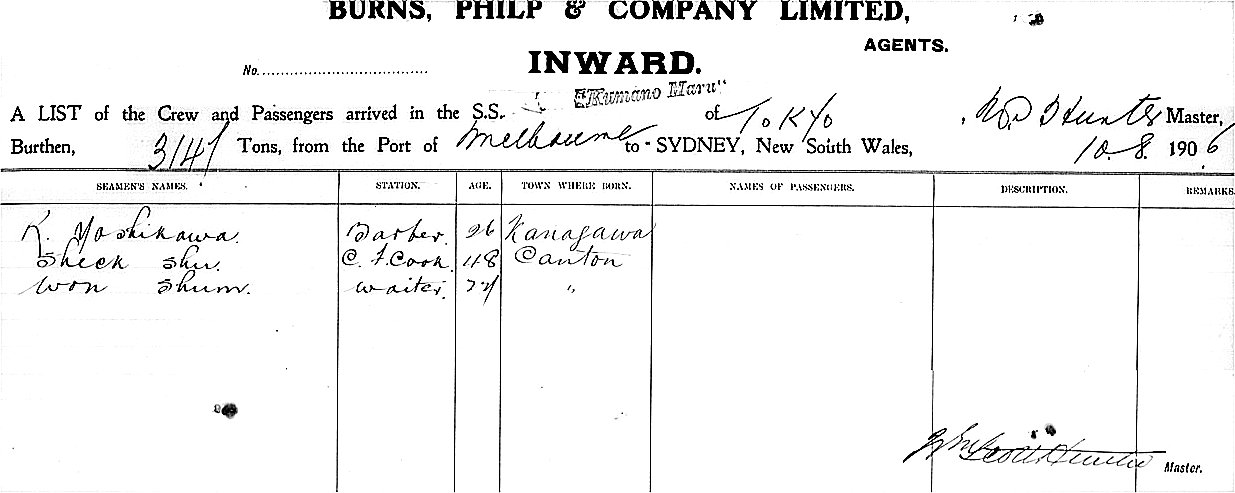 BURNS, PHILP & COMPANY LIMITED,
AGENTS.
No.
INWARD.
A LIST of the Crew and Passengers arrived in the S.S. "Kumano Maru" of Tokyo Hunter Master,
Burthen, 3147 Tons, from the Port of Melbourne to SYDNEY, New South Wales, 10.8. 1906
SEAMEN'S NAMES. STATION. AGE. TOWN WHERE BORN. NAMES OF PASSENGERS. DESCRIPTION. REMARKS.
K. Yoshikawa. Barber. 26 Kanagawa
Sheck Shu. C. F. Cook. 48 Canton
Won Shum. Waiter. "
Wm Scott Hunter Master.